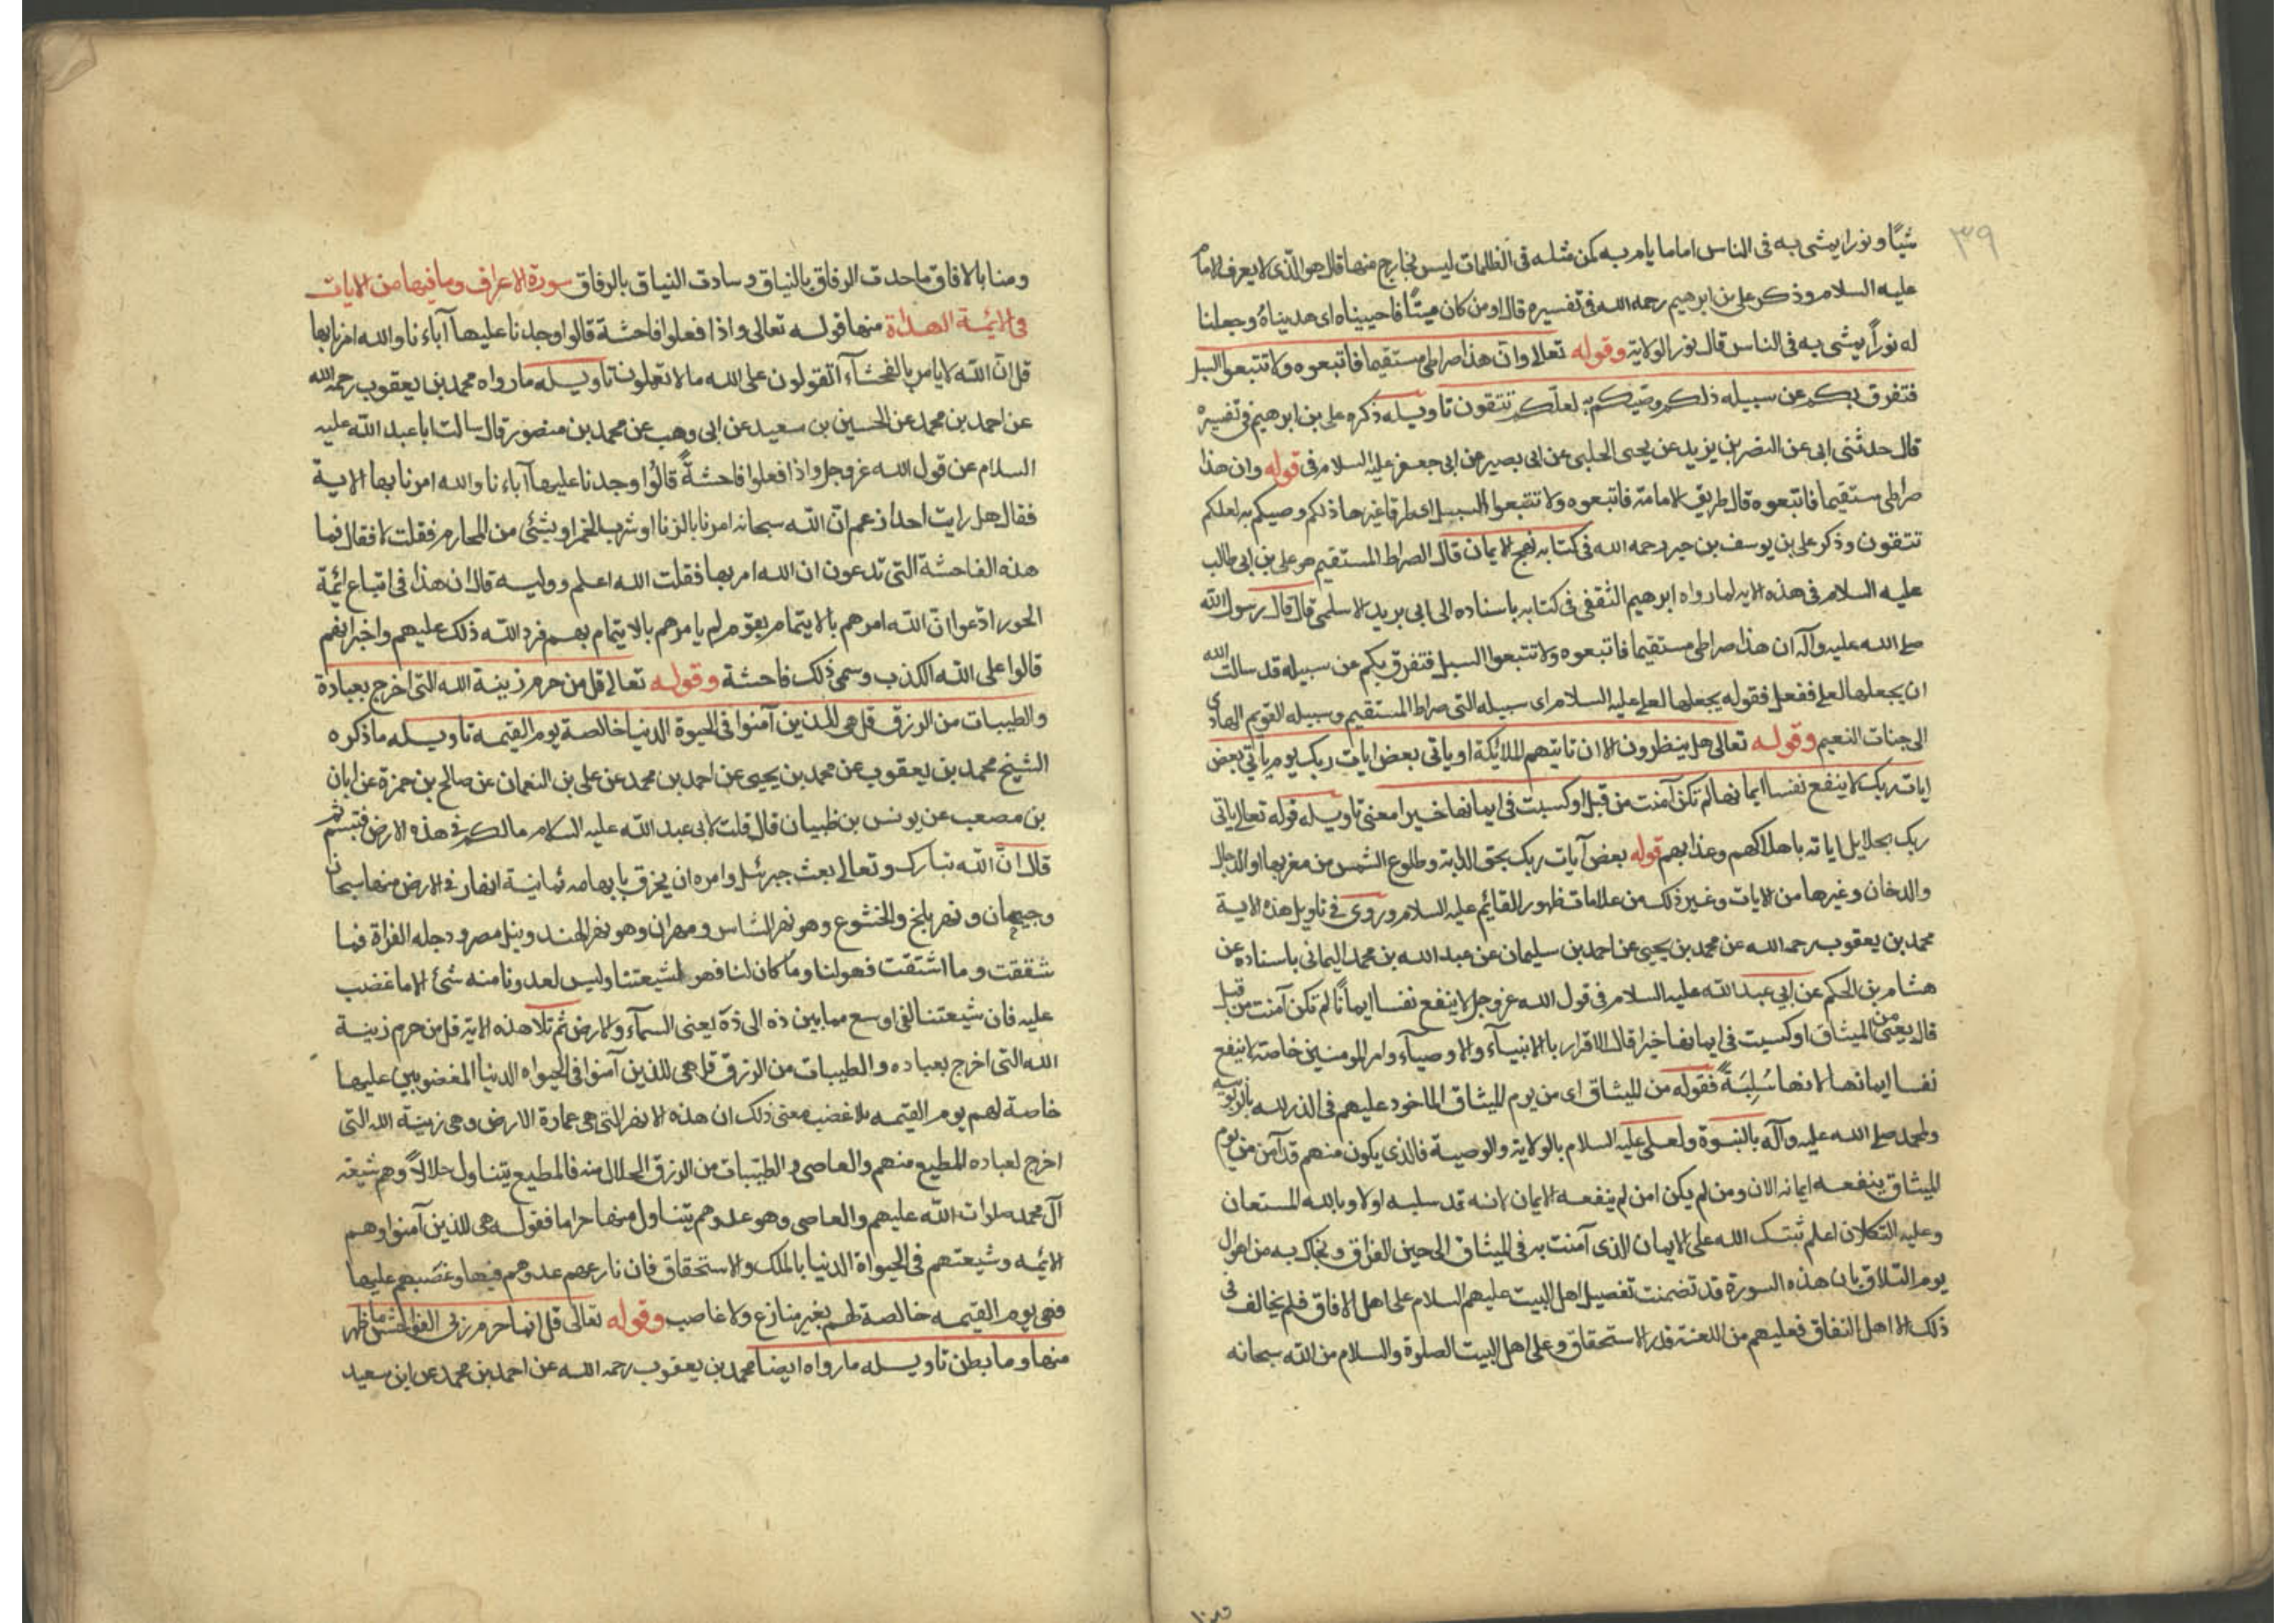 ٣٩
شيئا ونورا يمشى به فى الناس اماما يام به كمن مثله فى الظلمات ليس بخارج منها قال هو الذى لا يعرف الامام
عليه السلام وذكر على بن ابرهيم رحمه الله فى تفسيره قال اومن كان ميتا فاحييناه اى هديناه وجعلنا
له نورا يمشى به فى الناس قال نور الولاية وقوله تعالى وان هذا صراطى مستقيما فاتبعوه ولا تتبعوا السبل
فتفرق بكم عن سبيله ذلكم وصيكم به لعلكم تتقون تاويله ذكره على بن ابرهيم فى تفسيره
قال حدثنى ابى عن النضر بن يزيد عن يحيى الحلبى عن ابى بصير عن ابى جعفر عليه السلام فى قوله وان هذا
صراطى مستقيما فاتبعوه قال طريق الامامة فاتبعوه ولا تتبعوا السبل اى طرقا غيرها ذلكم وصيكم به لعلكم
تتقون وذكر على بن يوسف بن جبر رحمه الله فى كتابه نهج الايمان قال الصراط المستقيم هو على بن ابى طالب
عليه السلام فى هذه الاية لما رواه ابرهيم الثقفى فى كتابه باسناده الى ابى بريد الاسلمى قال قال رسول الله
صلى الله عليه وآله ان هذا صراطى مستقيما فاتبعوه ولا تتبعوا السبل فتفرق بكم عن سبيله قد سالت الله
ان يجعلها لعلى ففعل فقوله يجعلها لعلى عليه السلام اى سبيله التى صراط المستقيم وسبيله القويم الهادى
الى جنات النعيم وقوله تعالى هل ينظرون الا ان تاتيهم الملائكة او ياتى بعض ايات ربك يوم ياتى بعض
ايات ربك لا ينفع نفسا ايمانها لم تكن آمنت من قبل او كسبت فى ايمانها خيرا معنى تاويله قوله تعالى ياتى
ربك بجلايل اياته باهلاكهم وعذابهم قوله بعض آيات ربك بحق الدابة وطلوع الشمس من مغربها او الدجال
والدخان وغيرها من الايات وغير ذلك من علامات ظهور القايم عليه السلام وروى فى تاويل هذه الاية
محمد بن يعقوب رحمه الله عن محمد بن يحيى عن احمد بن سليمان عن عبد الله بن محمد اليمانى باسناده عن
هشام بن الحكم عن ابى عبد الله عليه السلام فى قول الله عز وجل لا ينفع نفسا ايمانا لم تكن آمنت من قبل
قال يعنى من الميثاق او كسبت فى ايمانها خيرا قال الاقرار بالانبياء والاوصياء وامر المومنين خاصة لا ينفع
نفسا ايمانها لانها سلبة فقوله من الميثاق اى من يوم الميثاق الماخوذ عليهم فى الذر لله بالربوبية
ولمحمد صلى الله عليه وآله بالنبوة ولعلى عليه السلام بالولاية والوصية فالذى يكون منهم قد آمن من يوم
الميثاق ينفعه ايمانه الان ومن لم يكن امن لم ينفعه الايمان لانه قد سلبه اولا وبالله المستعان
وعليه التكلان اعلم ثبتك الله على الايمان الذى آمنت به فى الميثاق الى حين الفراق ونجاك به من اهوال
يوم التلاق بان هذه السورة قد تضمنت تفصيل اهل البيت عليهم السلام على اهل الافاق فلم يخالف فى
ذلك الا اهل النفاق فعليهم من اللعنة قدر الاستحقاق وعلى اهل البيت الصلوة والسلام من الله سبحانه
ومنا
ومنا بالافاق ما حدت الرفاق بالنياق وسادت النياق بالرفاق سورة الاعراف وما فيها من الايات
فى الائمة الهداة منها قوله تعالى واذا فعلوا فاحشة قالوا وجدنا عليها آباءنا والله امرنا بها
قل ان الله لا يامر بالفحشاء اتقولون على الله ما لا تعلمون تاويله ما رواه محمد بن يعقوب رحمه الله
عن احمد بن محمد عن الحسين بن سعيد عن ابى وهب عن محمد بن منصور قال سالت ابا عبد الله عليه
السلام عن قول الله عز وجل واذا فعلوا فاحشة قالوا وجدنا عليها آباءنا والله امرنا بها الاية
فقال هل رايت احدا زعم ان الله سبحانه امرنا بالزنا او شرب الخمر او بشئ من المحارم فقلت لا فقال فما
هذه الفاحشة التى تدعون ان الله امر بها فقلت الله اعلم ووليه قال ان هذا فى اتباع ائمة
الجور ادعوا ان الله امرهم بالايتمام بقوم لم يامرهم بالايتمام بهم فرد الله ذلك عليهم واخبر انهم
قالوا على الله الكذب وسمى ذلك فاحشة وقوله تعالى قل من حرم زينة الله التى اخرج بعبادة
والطيبات من الرزق قل هى للذين آمنوا فى الحيوة الدنيا خالصة يوم القيمة تاويله ما ذكره
الشيخ محمد بن يعقوب عن محمد بن يحيى عن احمد بن محمد عن على بن النعمان عن صالح بن حمزة عن ابان
بن مصعب عن يونس بن ظبيان قال قلت لابى عبد الله عليه السلام مالكم فى هذه الارض فتبسم ثم
قال ان الله تبارك وتعالى بعث جبرئيل وامره ان يخرق بابهامه ثمانية انهار فى الارض منها سيحان
وجيحان ونهر بلخ والخشوع وهو نهر الشاس ومهران وهو نهر الهند ونيل مصر ودجله الفراة فما
شققت وما اشتقت فهو لنا وما كان لنا فهو لشيعتنا وليس لعدونا منه شئ الا ما غضب
عليه فان شيعتنا لفى اوسع مما بين ذه الى ذه يعنى السماء والارض ثم تلا هذه الاية قل من حرم زينة
الله التى اخرج بعباده والطيبات من الرزق قل هى للذين آمنوا فى الحيواه الدنيا المغضوبين عليها
خاصة لهم يوم القيمه بلا غضب معنى ذلك ان هذه الانهر التى هى عمارة الارض وهى زينة الله التى
اخرج لعباده المطيع منهم والعاصى والطيبات من الرزق الحلال منه فالمطيع يتناول حلالا وهم شيعة
آل محمد صلوات الله عليهم والعاصى وهو عدوهم يتناول منها حراما فقوله هى للذين آمنوا وهم
الائمه وشيعتهم فى الحيواة الدنيا بالملك والاستحقاق فان نازعهم عدوهم فيها وغصبهم عليها
فهى يوم القيمه خالصة لهم بغير منازع ولا غاصب وقوله تعالى قل انما حرم ربى الفواحش ما ظهر
منها وما بطن تاويله ما رواه ايضا محمد بن يعقوب رحمه الله عن احمد بن محمد عن ابن سعيد